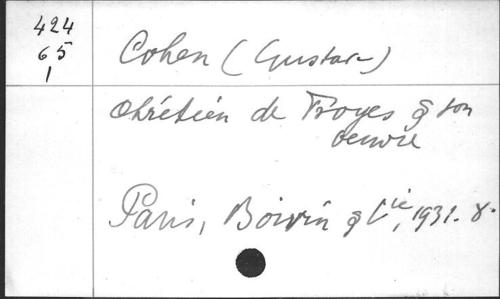 424
65
1
Cohen (Gustave)
Chrétien de Troyes & son
oeuvre
Paris, Boivin & Cie, 1931. 8.